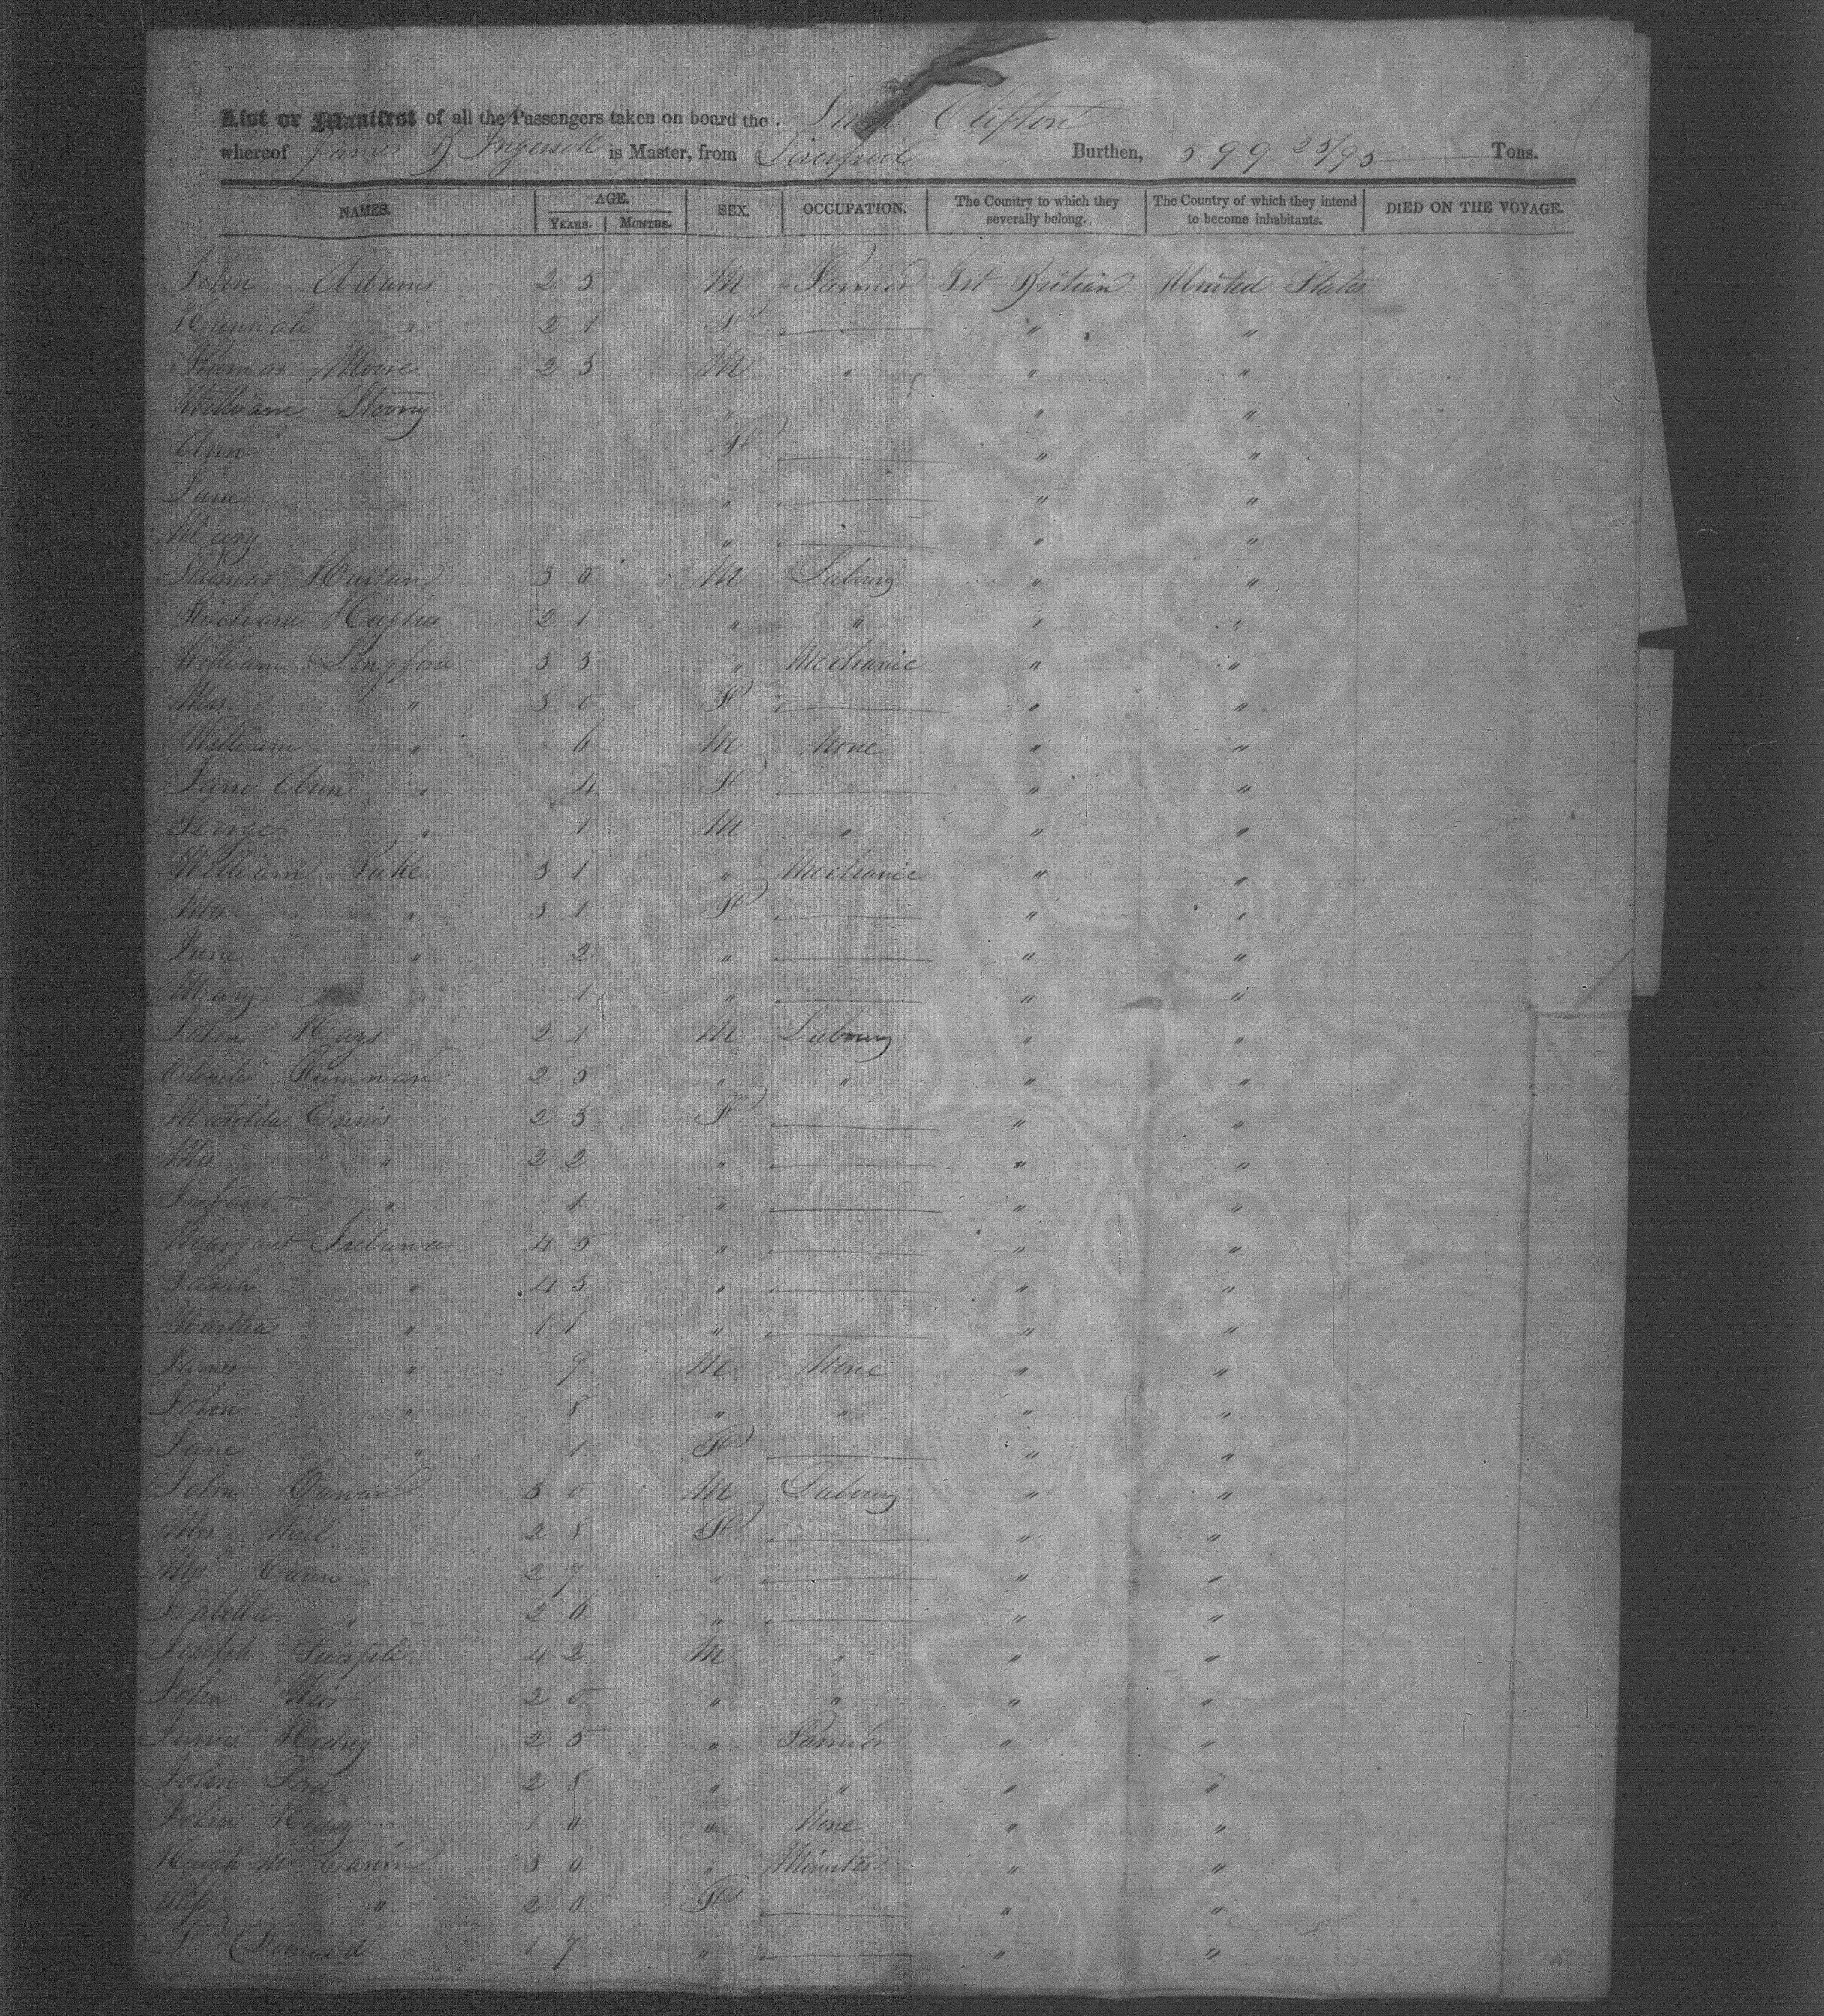 List or Manifest of all the Passengers taken on board the Ship Clifton
whereof James B Ingersoll is Master, from Liverpool Burthen, 599 25/95 Tons.
NAMES. AGE. YEARS. MONTHS. SEX. OCCUPATION. The Country to which they severally belong. The Country of which they intend to become inhabitants. DIED ON THE VOYAGE.
John Adams 25 M Farmer Grt Britian United States
Hannah " 21 F — " "
Thomas Moore 23 M " " "
William " " "
Ann F — " "
Jane " — " "
Mary " — " "
Thomas 30 M Laborer " "
Hughes 21 " " " "
William Longford 35 " Mechanic " "
Mrs " 30 F — " "
William " 6 M None " "
Jane Ann " 4 F — " "
George " 1 M " " "
William Pake 31 " Mechanic " "
Mrs " 31 F — " "
Jane " 2 " — " "
Mary " 1 " — " "
John Hays 21 M Laborer " "
Charles 25 " " " "
Matilda Ennis 23 F — " "
Mrs " 22 " — " "
Infant " 1 " — " "
Margaret Ireland 45 " — " "
Sarah " 43 " — " "
Martha " 11 " — " "
James " 9 M None " "
John " 8 " " " "
Jane " 1 F — " "
John 30 M Laborer " "
Mrs 28 F — " "
Mrs 27 " — " "
Isabella " 26 " — " "
Joseph 42 M " " "
John Weir 20 " " " "
James 25 " Farmer " "
John 28 " " " "
John 10 " None " "
Hugh Mc 30 " Minister " "
Miss " 20 F — " "
Donald 17 " — " "